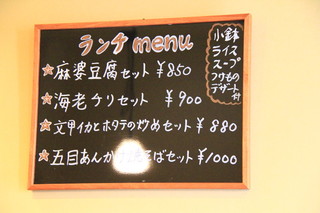 ランチmenu
☆麻婆豆腐セット ¥850
☆海老チリセット ¥900
☆文甲イカとホタテの炒めセット ¥880
☆五目あんか そばセット ¥1000
小鉢
ライス
スープ
つけもの
デザート付